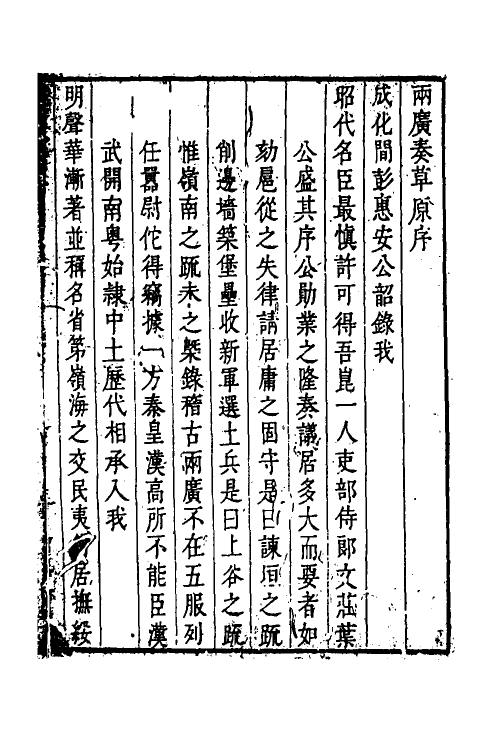 兩廣奏草原序
成化間彭惠安公韶錄我
昭代名臣最慎許可得吾崑一人吏部侍郎文莊葉
公盛其序公勛業之隆奏議居多大而要者如
劾扈從之失律請居庸之固守是曰諫垣之䟽
創邊墻築堡壘收新軍選土兵是曰上谷之䟽
惟嶺南之䟽未之槩錄稽古兩廣不在五服列
任囂尉佗得竊據一方秦皇漢高所不能臣漢
武開南粤始隷中土歷代相承入我
明聲華漸著並稱名省第嶺海之交民夷居撫綏